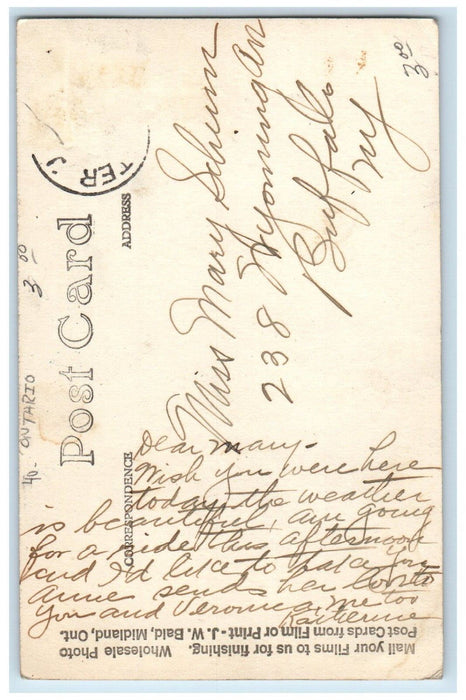 Post Card
CORRESPONDENCE
ADDRESS
TER
40- ONTARIO 3.00
3 00
Miss Mary Schum
238 Wyoming Av
Buffalo
NY
Dear Mary-
Wish you were here
today the weather
is beautiful, am going
for a ride this afternoon
and I'd like to hata you
Anne sends her love to
you and Veronica, me too
Katherine
Mail your Films to us for finishing. Wholesale Photo
Post Cards from Film or Print - J. W. Bald, Midland, Ont.